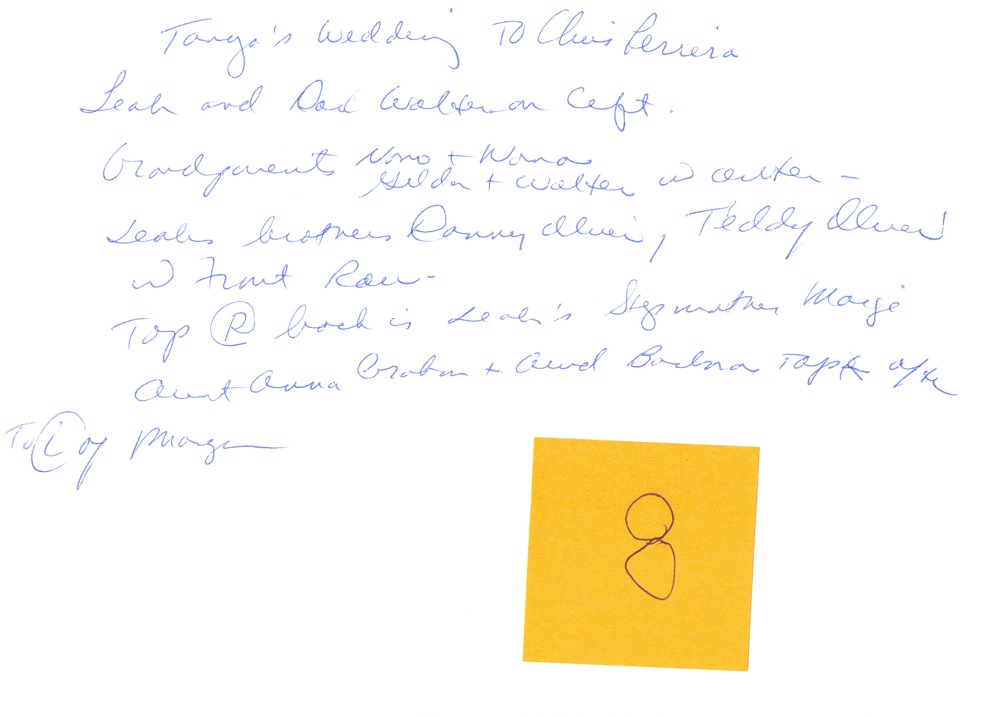 Tanya's Wedding To Chris Ferreira
Leah and Dad Walter on Left.
Grandparents Nono + Nona
Gilda + Walter in center -
Leahs brothers Danny Oliveri, Teddy Oliveri
in Front Row -
Top R back is Leah's Stepmother Margie
Aunt Anna + Aunt Barbara Top
To L of Marge
8